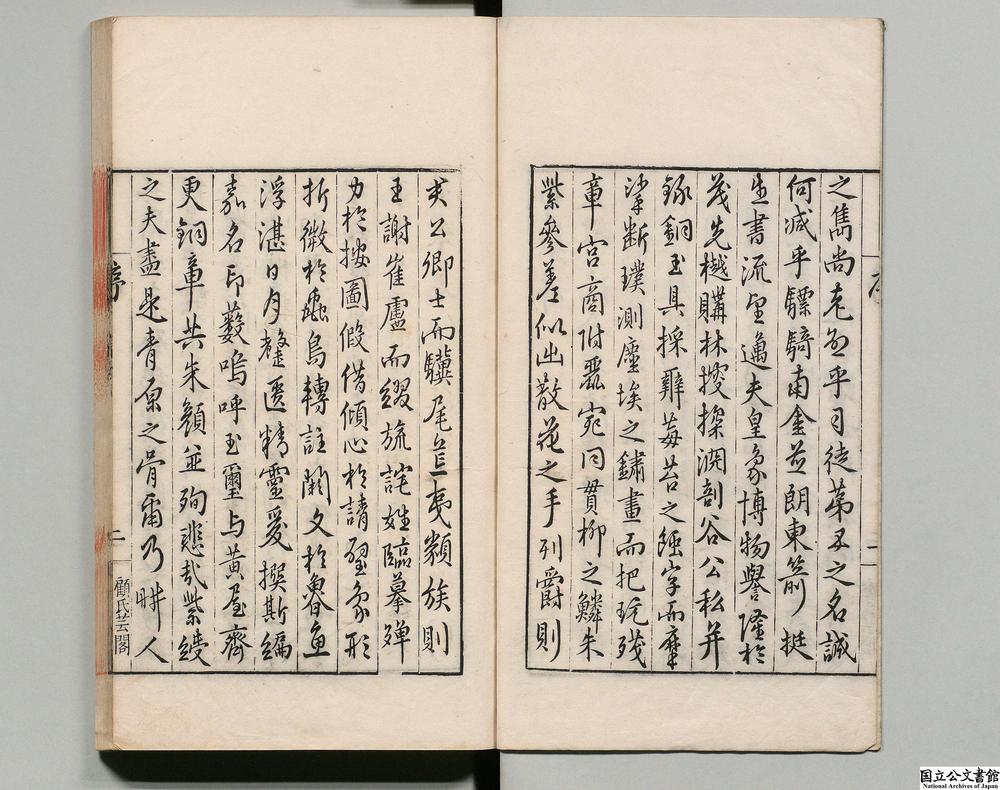 之雋尚老逾乎司徒第五之名誠
何减乎驃騎南金並朗東箭挺
生書流望邁夫皇象博物譽隆於
茂先樾購林搜探淵剖谷公私并
錄銅玉具採難莓苔之蝕字而摩
挲斷璞測塵埃之鏽畫而把玩殘
章宮商附麗宛同貫柳之鱗朱
紫參差似出散花之手列爵則
序
二
侯公卿士而驥尾並夷類族則
王謝崔盧而綴旒詫姓臨摹殫
力於按圖假借傾心於請璽象形
折微於蟲鳥轉註闕文於魯魚
浮湛日月整匱精靈爰撰斯編
嘉名印藪嗚呼玉璽与黄屋齊
更銅章共朱顏並殉悲哉紫綬
之夫盡是青原之骨爾乃畊人
序
二
顧氏芸閣
国立公文書館
National Archives of Japan